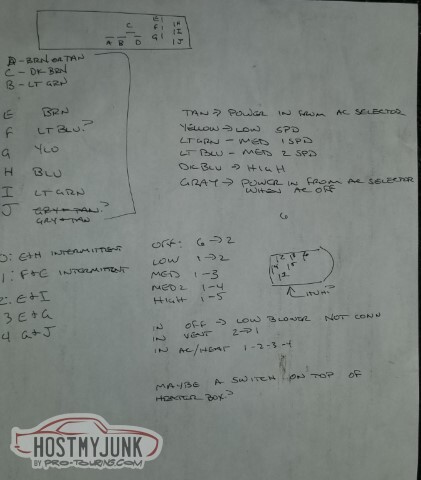 C E1 1H
F1 1I
A B D G1 1J
A-BRN OR TAN
C-DK BRN
B-LT GRN
E BRN
F LT BLU?
G YLO
H BLU
I LT GRN
J GRY + TAN?
GRY + TAN
TAN → POWER IN FROM AC SELECTOR
YELLOW → LOW SPD
LT GRN - MED 1 SPD
LT BLU - MED 2 SPD
DK BLU → HIGH
GRAY → POWER IN FROM AC SELECTOR
WHEN AC OFF
6
0: E+H INTERMITTENT
1: F+E INTERMITTENT
2: E+I
3 E+G
4 G+J
OFF: 6→2
LOW 1→2
MED 1-3
MED2 1-4
HIGH 1-5
IN OFF → LOW BLOWER NOT CONN
IN VENT 2→1
IN AC/HEAT 1-2-3-4
MAYBE A SWITCH ON TOP OF
HEATER BOX?
HOSTMYJUNK
BY PRO-TOURING.COM